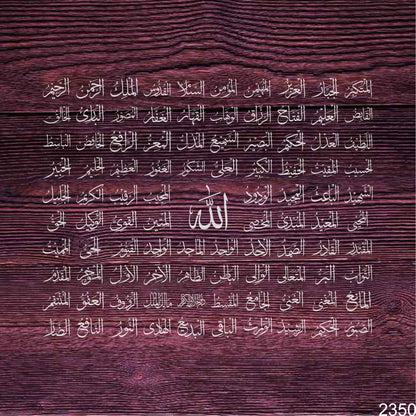 المتكبر الجبار العزيز المهيمن المؤمن السلام القدوس الملك الرحمن الرحيم
القابض العليم الفتاح الرزاق الوهاب القهار الغفار المصور البارئ الخالق
اللطيف العدل الحكم البصير السميع المذل المعز الرافع الخافض الباسط
الحسيب المقيت الحفيظ الكبير العلي الشكور الغفور العظيم الحليم الخبير
الشهيد الباعث المجيد الودود المجيب الرقيب الكريم الجليل
الله
المحيي المعيد المبدئ المحصي المتين القوي الوكيل الحق
المقتدر القادر الصمد الاحد الواحد الماجد الواجد القيوم الحي المميت
التواب البر المتعالي الوالي الباطن الظاهر الآخر الأول المؤخر المقدم
المانع المغني الغني الجامع المقسط ذو الجلال والإكرام مالك الملك الرؤوف العفو المنتقم
الصبور الحكيم الرشيد الوارث الباقي البديع الهادي النور النافع الضار
2350